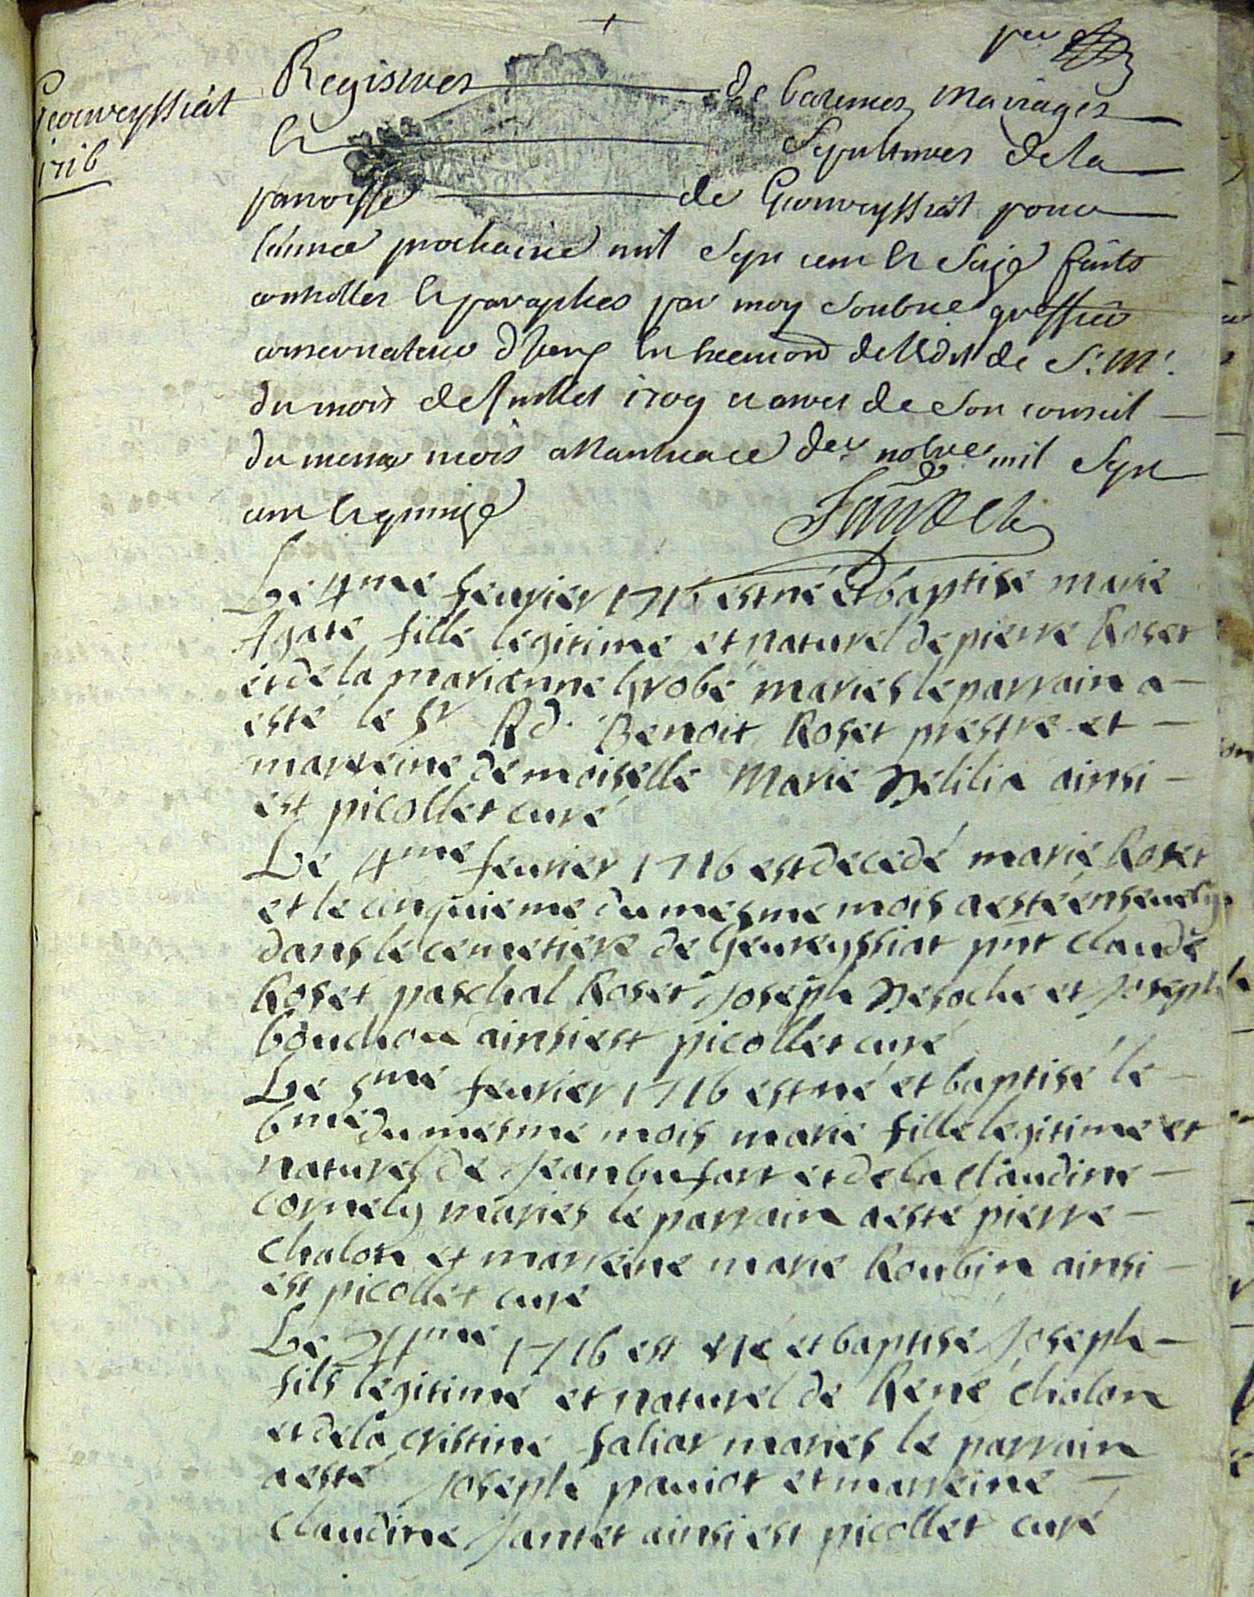 Geovreyssiat
1716
Registres de batemes, Mariages
Et Sepultures de la
paroisse de Geovreyssiat pour
lannee prochaine mil sept cent et seize faits
controller et paraphes par moy greffier
conservateur de ledit de S. M.
du mois de Juillet 1709 et arret de son conseil
du meme mois a Nantua ce novbre mil sept
cent et quinze
Le 4me feurier 1716 est né et baptisé marie
Agate fille legitime et naturel de pierre Roset
et de la marianne grobé maries le parrain a
esté le Sr Rd. Benoit Roset prestre et
marreine demoiselle Marie Delilia ainsi
est picollet curé
Le 4me feurier 1716 est decedé marie Roset
et le cinquieme du mesme mois a esté enseuely
dans le cemetiere de Geureyssiat pnt claude
Roset paschal Roset Joseph Deroche et Joseph
bouchou ainsi est picollet curé
Le 5me feurier 1716 est né et baptisé le
6me du mesme mois marie fille legitime et
naturel de Jean bufart et de la claudine
cornely maries le parrain a esté pierre
chalon et marreine marie Roubin ainsi
est picollet curé
Le 24me 1716 est né et baptisé Joseph
fils legitime et naturel de René chalon
et de la cristine saliar maries le parrain
a esté Joseph pauiot et marreine
claudine Jantet ainsi est picollet curé